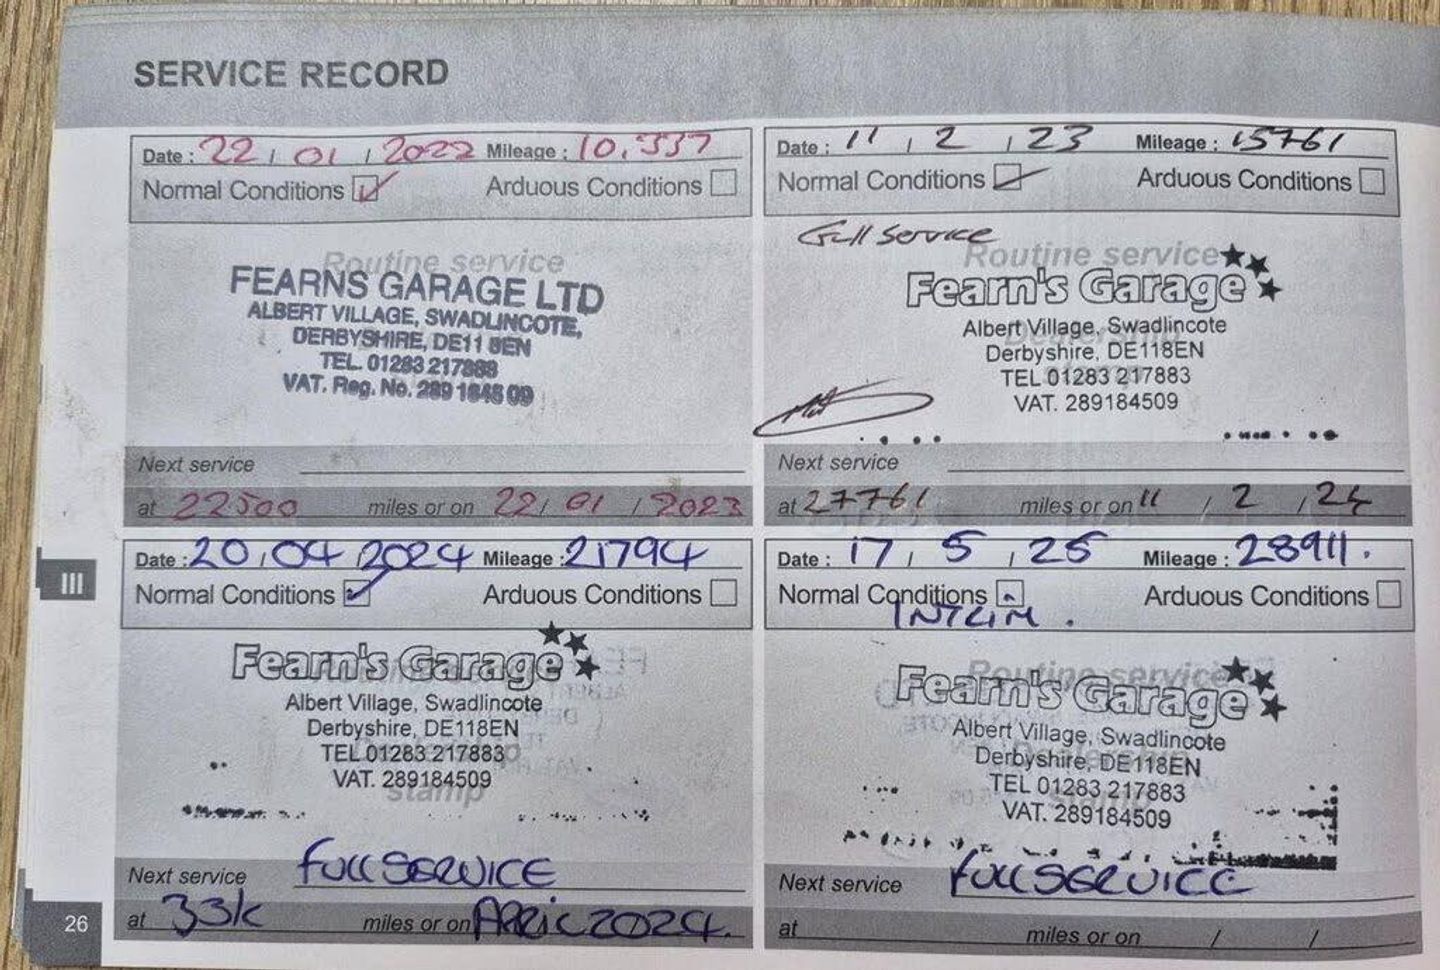 SERVICE RECORD
Date : 22 / 01 / 2022 Mileage : 10,337
Normal Conditions Arduous Conditions
Routine service
FEARNS GARAGE LTD
ALBERT VILLAGE, SWADLINCOTE,
DERBYSHIRE, DE11 8EN
TEL. 01283 217883
VAT. Reg. No. 289 1845 09
Next service
at 22500 miles or on 22 / 01 / 2023
Date : 11 / 2 / 23 Mileage : 15761
Normal Conditions Arduous Conditions
Full Service
Routine service
Fearn's Garage
Albert Village, Swadlincote
Derbyshire, DE118EN
TEL 01283 217883
VAT. 289184509
Next service
at 27761 miles or on 11 / 2 / 24
Date : 20 / 04 / 2024 Mileage : 21794
Normal Conditions Arduous Conditions
Fearn's Garage
Albert Village, Swadlincote
Derbyshire, DE118EN
TEL 01283 217883
VAT. 289184509
stamp
Next service FULL SERVICE
at 33k miles or on APRIL 2024.
Date : 17 / 5 / 25 Mileage : 28911.
Normal Conditions Arduous Conditions
INTERIM.
Routine service
Fearn's Garage
Albert Village, Swadlincote
Derbyshire, DE118EN
TEL 01283 217883
VAT. 289184509
Next service FULL SERVICE
at miles or on / /
III
26